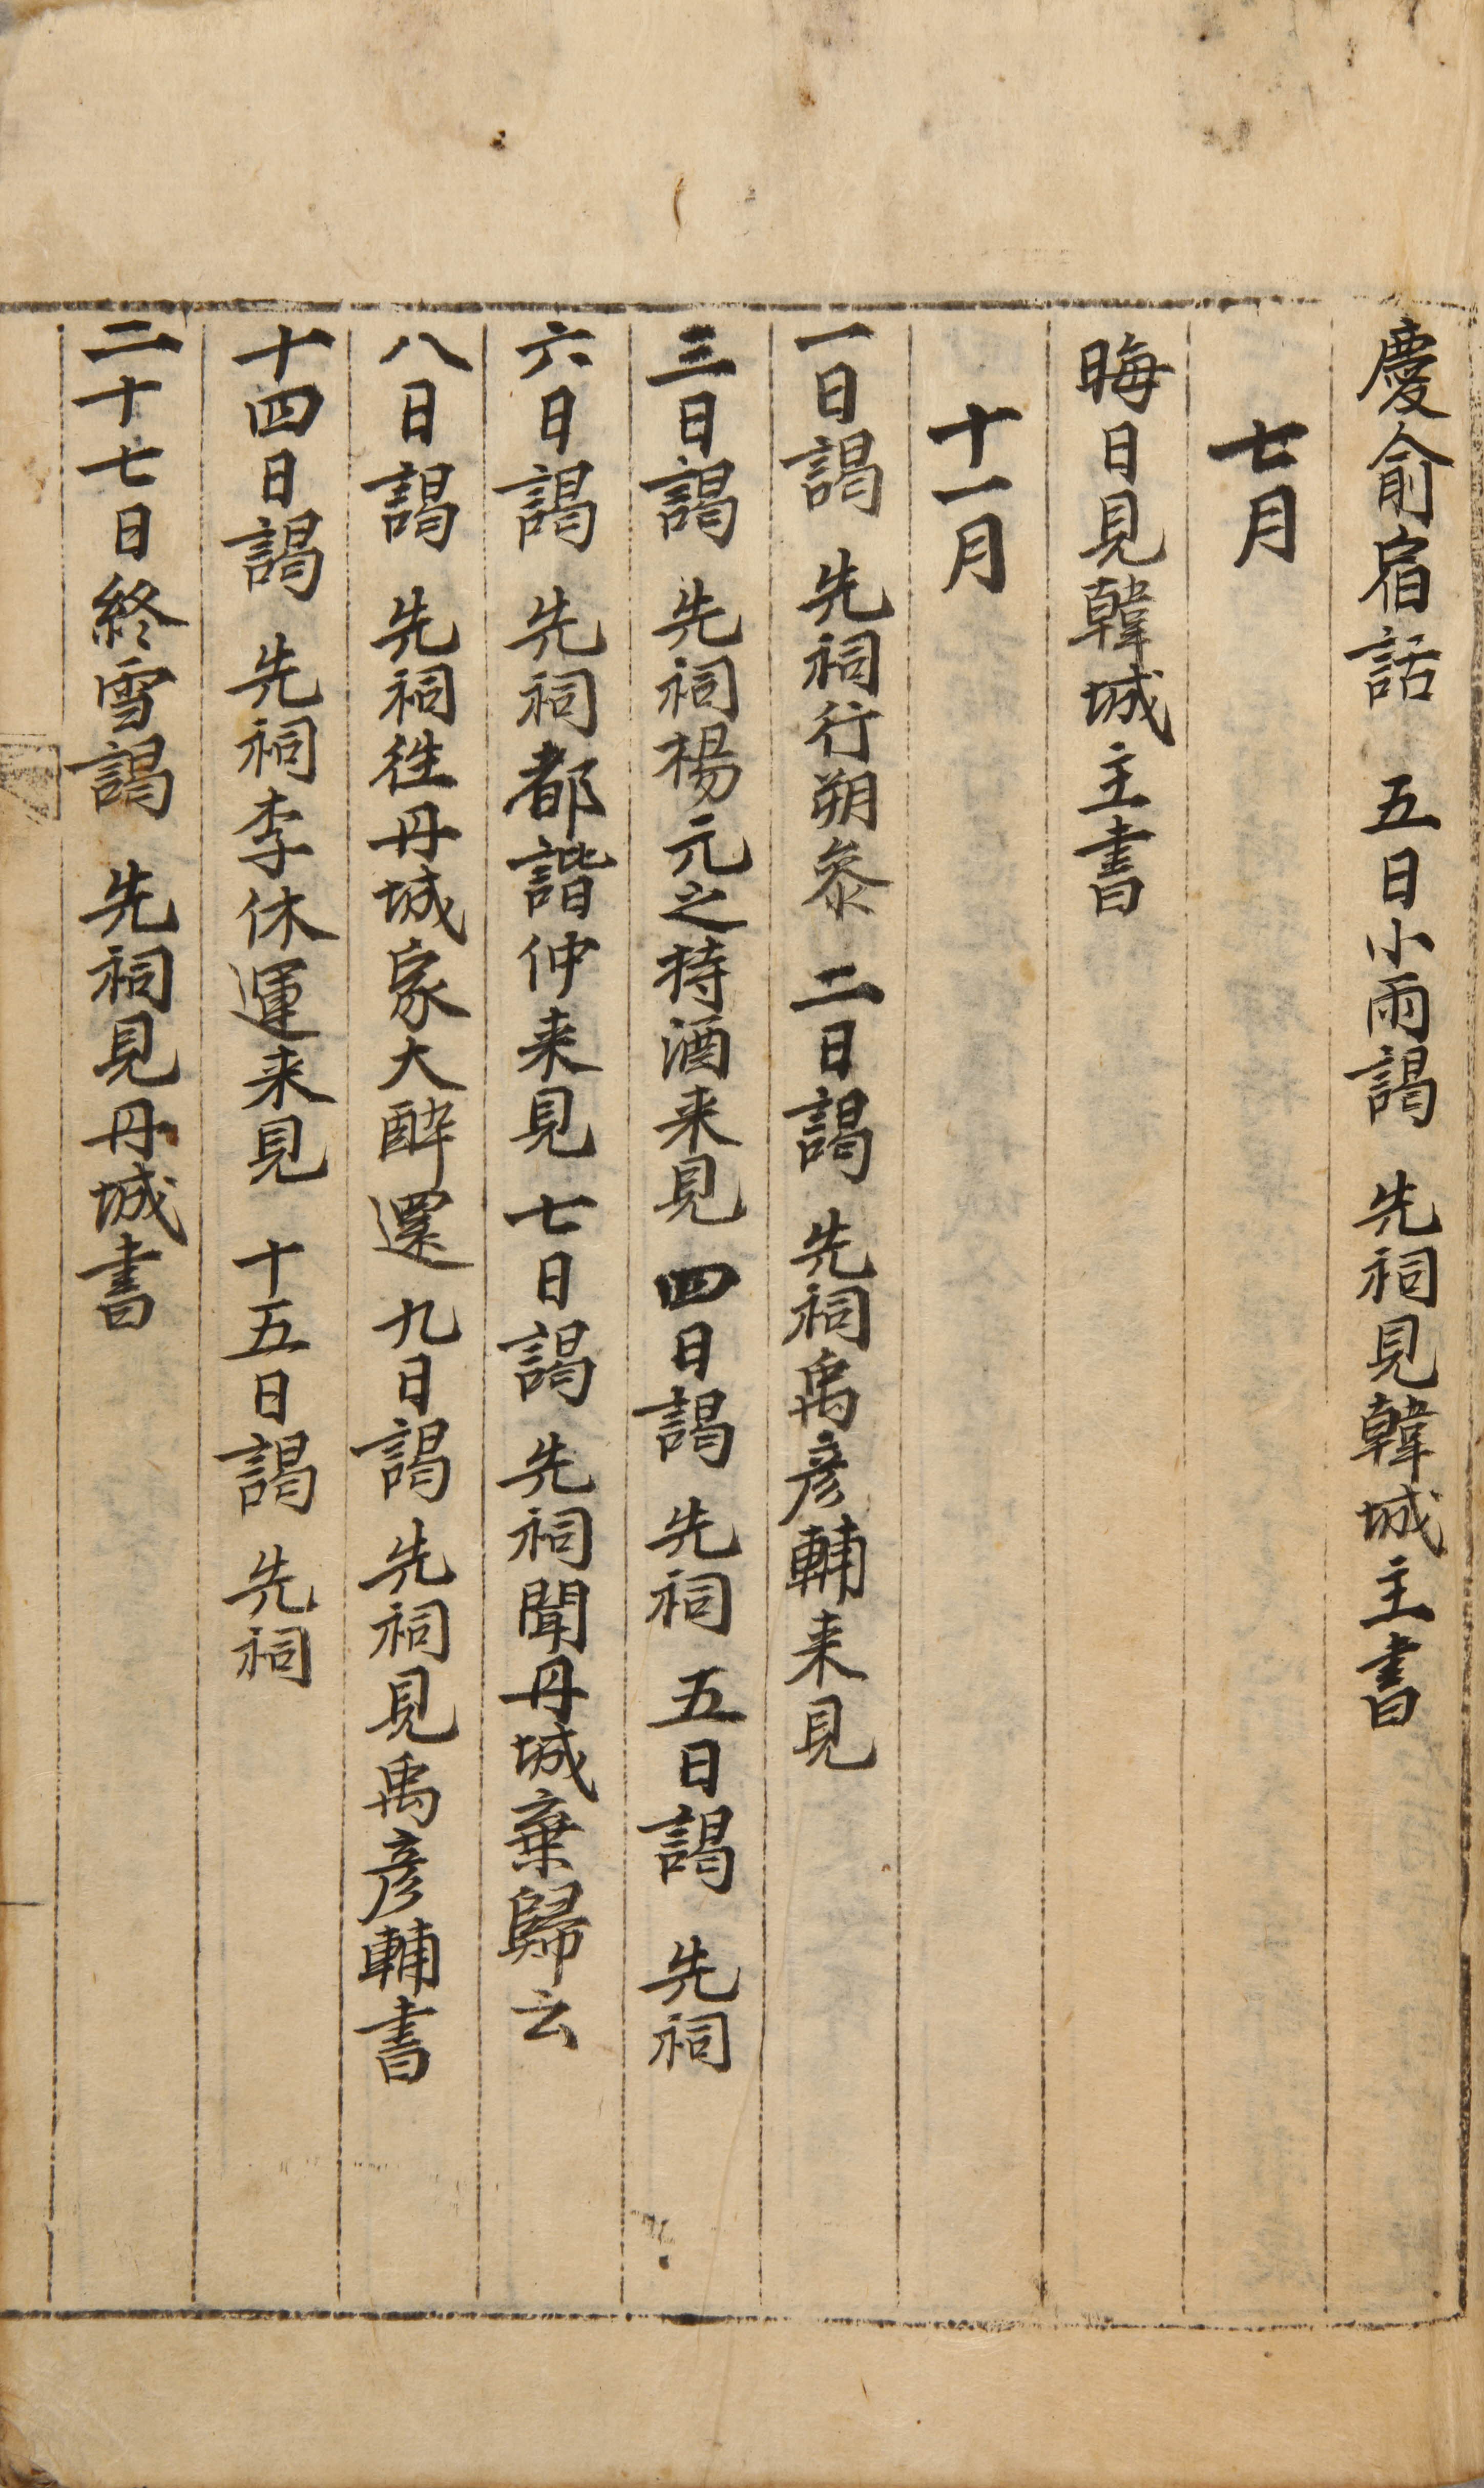 慶俞宿話 五日小雨謁 先祠見韓城主書
七月
晦日見韓城主書
十一月
一日謁 先祠行朔叅 二日謁 先祠禹彦輔来見
三日謁 先祠楊元之持酒来見 四日謁 先祠 五日謁 先祠
六日謁 先祠都諧仲来見 七日謁 先祠聞丹城棄歸云
八日謁 先祠徃丹城家大醉還 九日謁 先祠見禹彦輔書
十四日謁 先祠李休運来見 十五日謁 先祠
二十七日終雪謁 先祠見丹城書